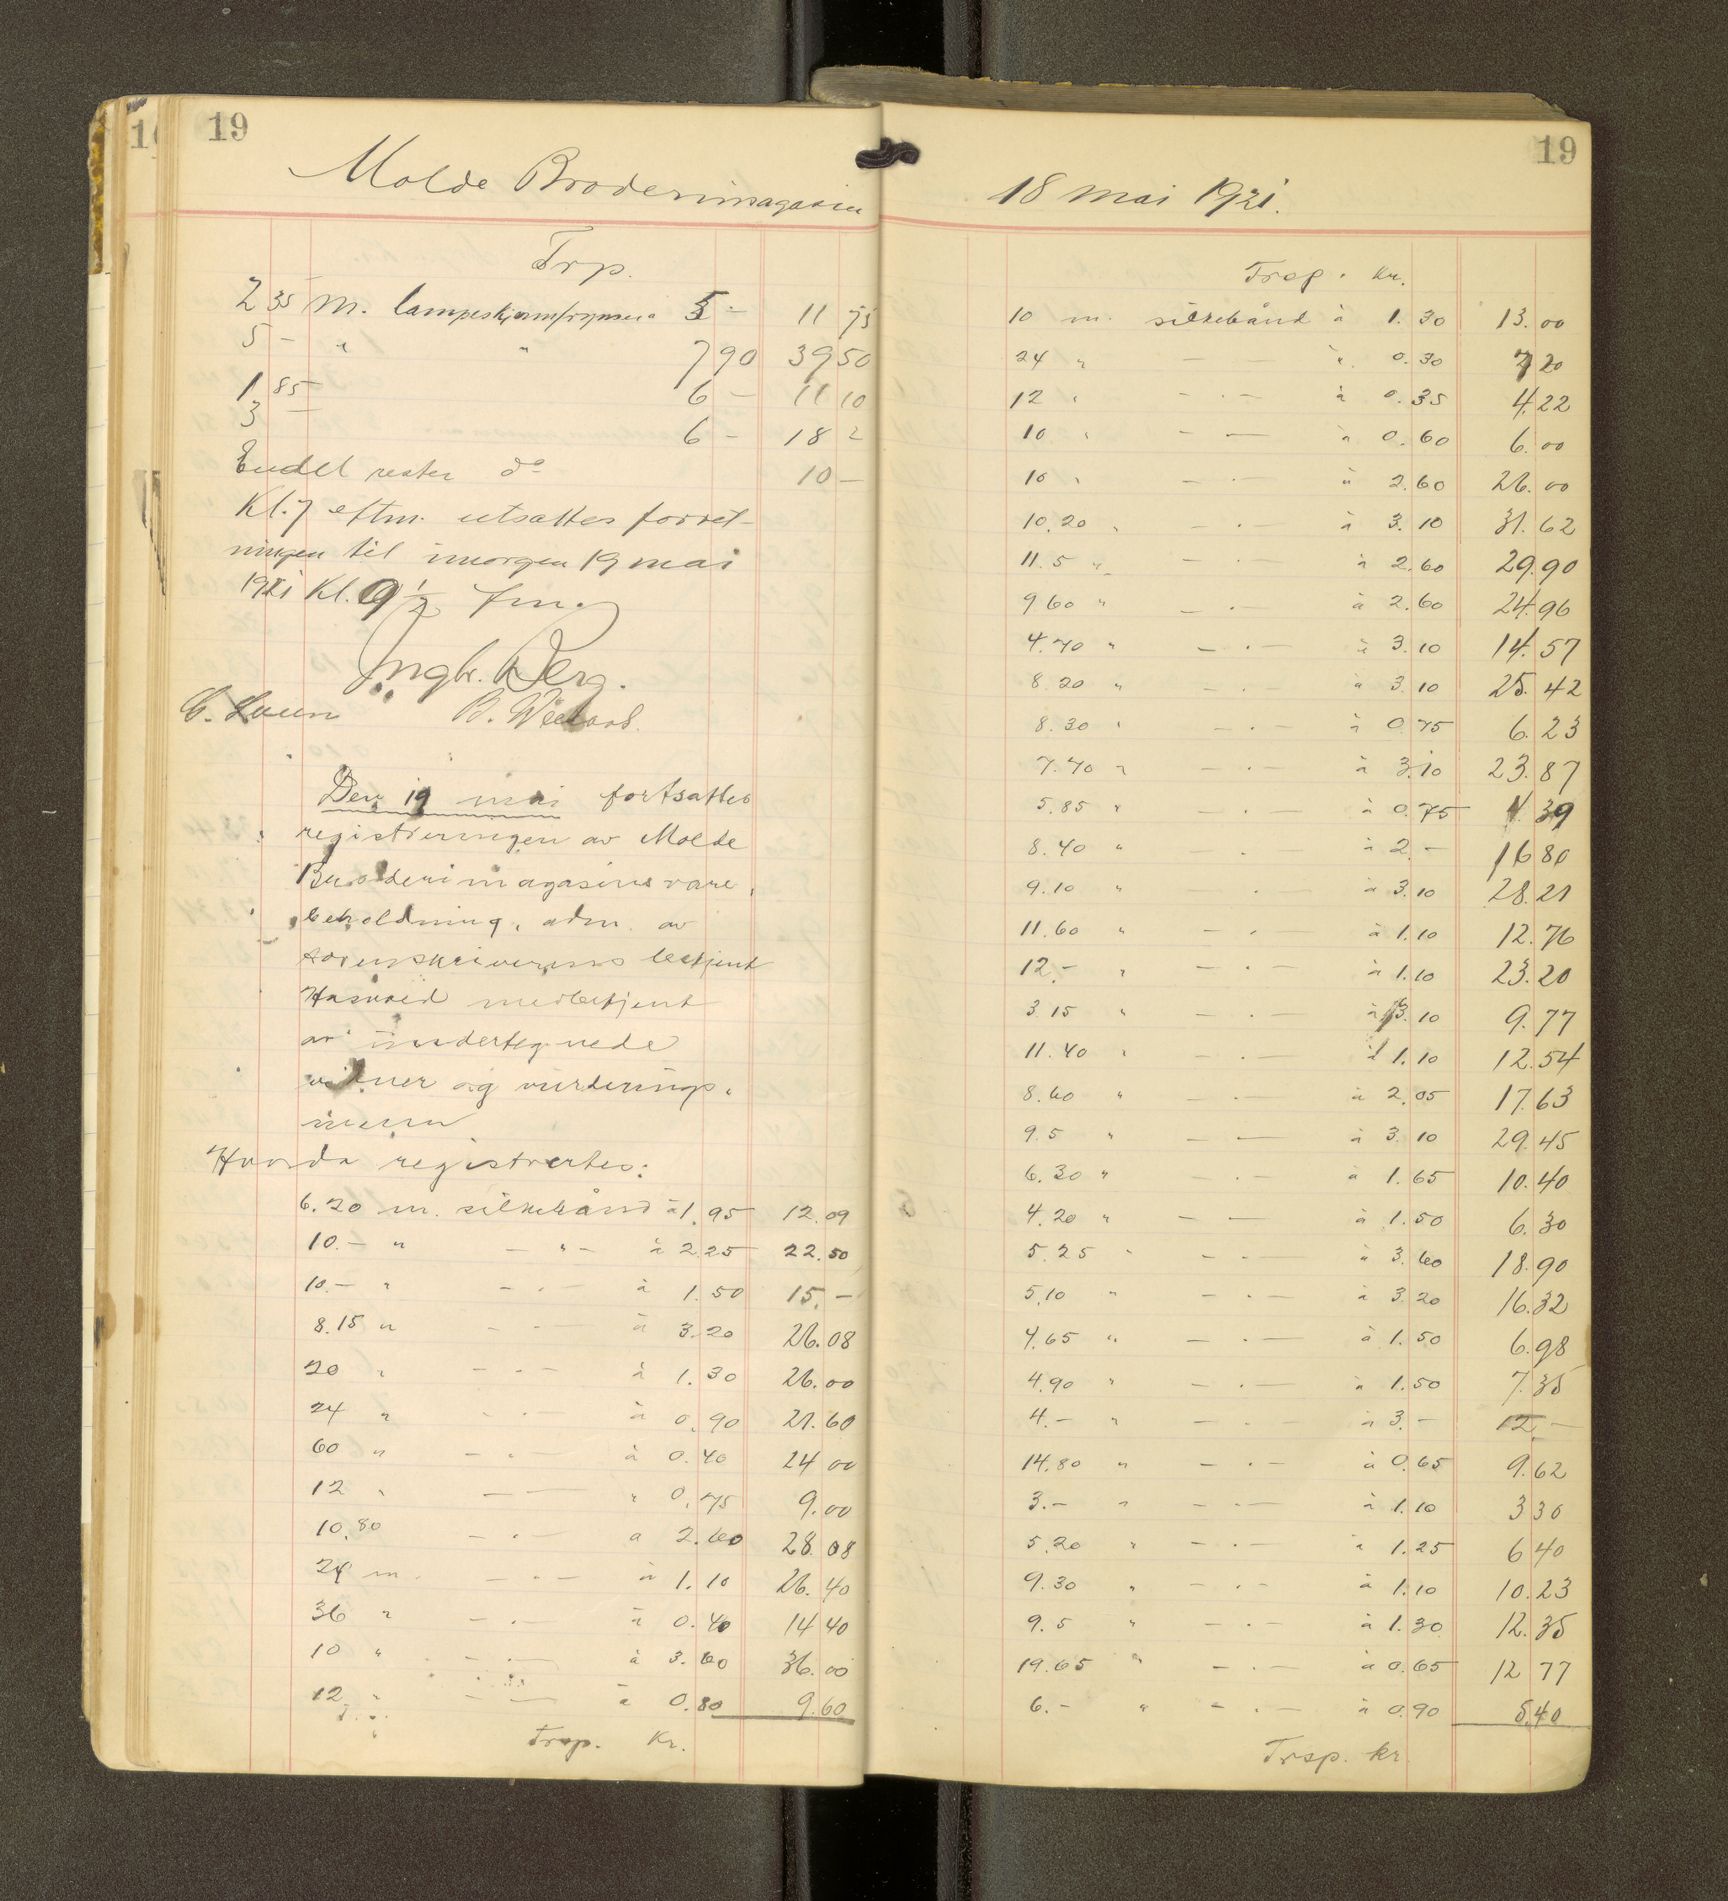 19
Molde Broderimagasin
Trp.
2 35 m. lampeskjermfrynser 5 - 11 75
5 - " " 7 90 39 50
1 85 6 - 11 10
3 - 6 - 18 -
Endel rester do 10 -
Kl. 7 eftm. utsattes forret-
ningen til imorgen 19 mai
1921 Kl. 9 1/2 fm.
Ingbr. Berg.
Den 19 mai fortsattes
registreringen av Molde
Broderimagasins vare-
beholdning, adm. av
sorenskriverens betjent
Hasvold medbetjent
av undertegnede
vidner og vurderings-
menn
Hvorda registrertes:
6.20 m. silkebånd à 1.95 12.09
10.- " - " - à 2.25 22.50
10.- " - " - à 1.50 15.-
8.15 " - " - à 3.20 26.08
20 " - " - à 1.30 26.00
24 " - " - à 0.90 21.60
60 " - " - à 0.40 24 00
12 " - - " 0.75 9.00
10.80 - " - a 2.60 28.08
24 m. - " - à 1.10 26.40
36 " - " - à 0.40 14 40
10 " - " - à 3.60 36.00
12 " - - à 0.80 9.60
Trsp. Kr.
19
18 mai 1921.
Trsp. Kr.
10 m. silkebånd à 1.30 13.00
24 " - " 0.30 7 20
12 " - " - à 0.35 4.22
10 " - " - à 0.60 6.00
10 " - " - à 2.60 26.00
10.20 " - " - à 3.10 31.62
11.5 " - " - à 2.60 29.90
9.60 " - " - à 2.60 24.96
4.70 " - " - à 3.10 14.57
8.20 " - " - à 3.10 25.42
8.30 " - " - à 0.75 6.23
7.70 " - " - à 3.10 23.87
5.85 " - " - à 0.75 4.39
8.40 " - " - à 2.- 16 80
9.10 " - " - à 3.10 28.21
11.60 " - " - à 1.10 12.76
12.- " - " - à 1.10 23.20
3.15 " - " - à 3.10 9.77
11.40 " - " - à 1.10 12.54
8.60 " - " - à 2.05 17.63
9.5 " - " - à 3.10 29.45
6.30 " - " - à 1.65 10.40
4.20 " - " - à 1.50 6.30
5.25 " - " - " 3.60 18.90
5.10 " - " - à 3.20 16.32
4.65 " - " - à 1.50 6.98
4.90 " - " - à 1.50 7.35
4.- " - " - à 3.- 12.-
14.80 " - " - à 0.65 9.62
3.- " - " - à 1.10 3 30
5.20 " - " - " 1.25 6 40
9.30 " - " - à 1.10 10.23
9.5 " - " - à 1.30 12.35
19.65 " - " - à 0.65 12 77
6.- " - " - à 0.90 5.40
Trsp. kr.